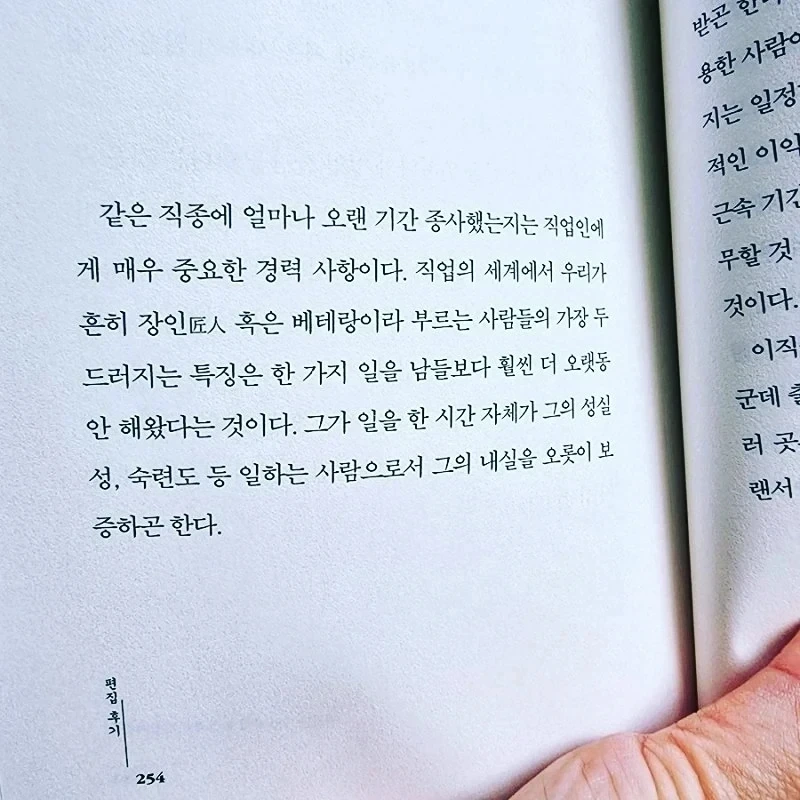 같은 직종에 얼마나 오랜 기간 종사했는지는 직업인에
게 매우 중요한 경력 사항이다. 직업의 세계에서 우리가
흔히 장인匠人 혹은 베테랑이라 부르는 사람들의 가장 두
드러지는 특징은 한 가지 일을 남들보다 훨씬 더 오랫동
안 해왔다는 것이다. 그가 일을 한 시간 자체가 그의 성실
성, 숙련도 등 일하는 사람으로서 그의 내실을 오롯이 보
증하곤 한다.
편집 후기
254
받곤
용한 사람
지는 일정
적인 이익
근속 기간
무할 것
것이다.
이직
군데
러 곳
랜서